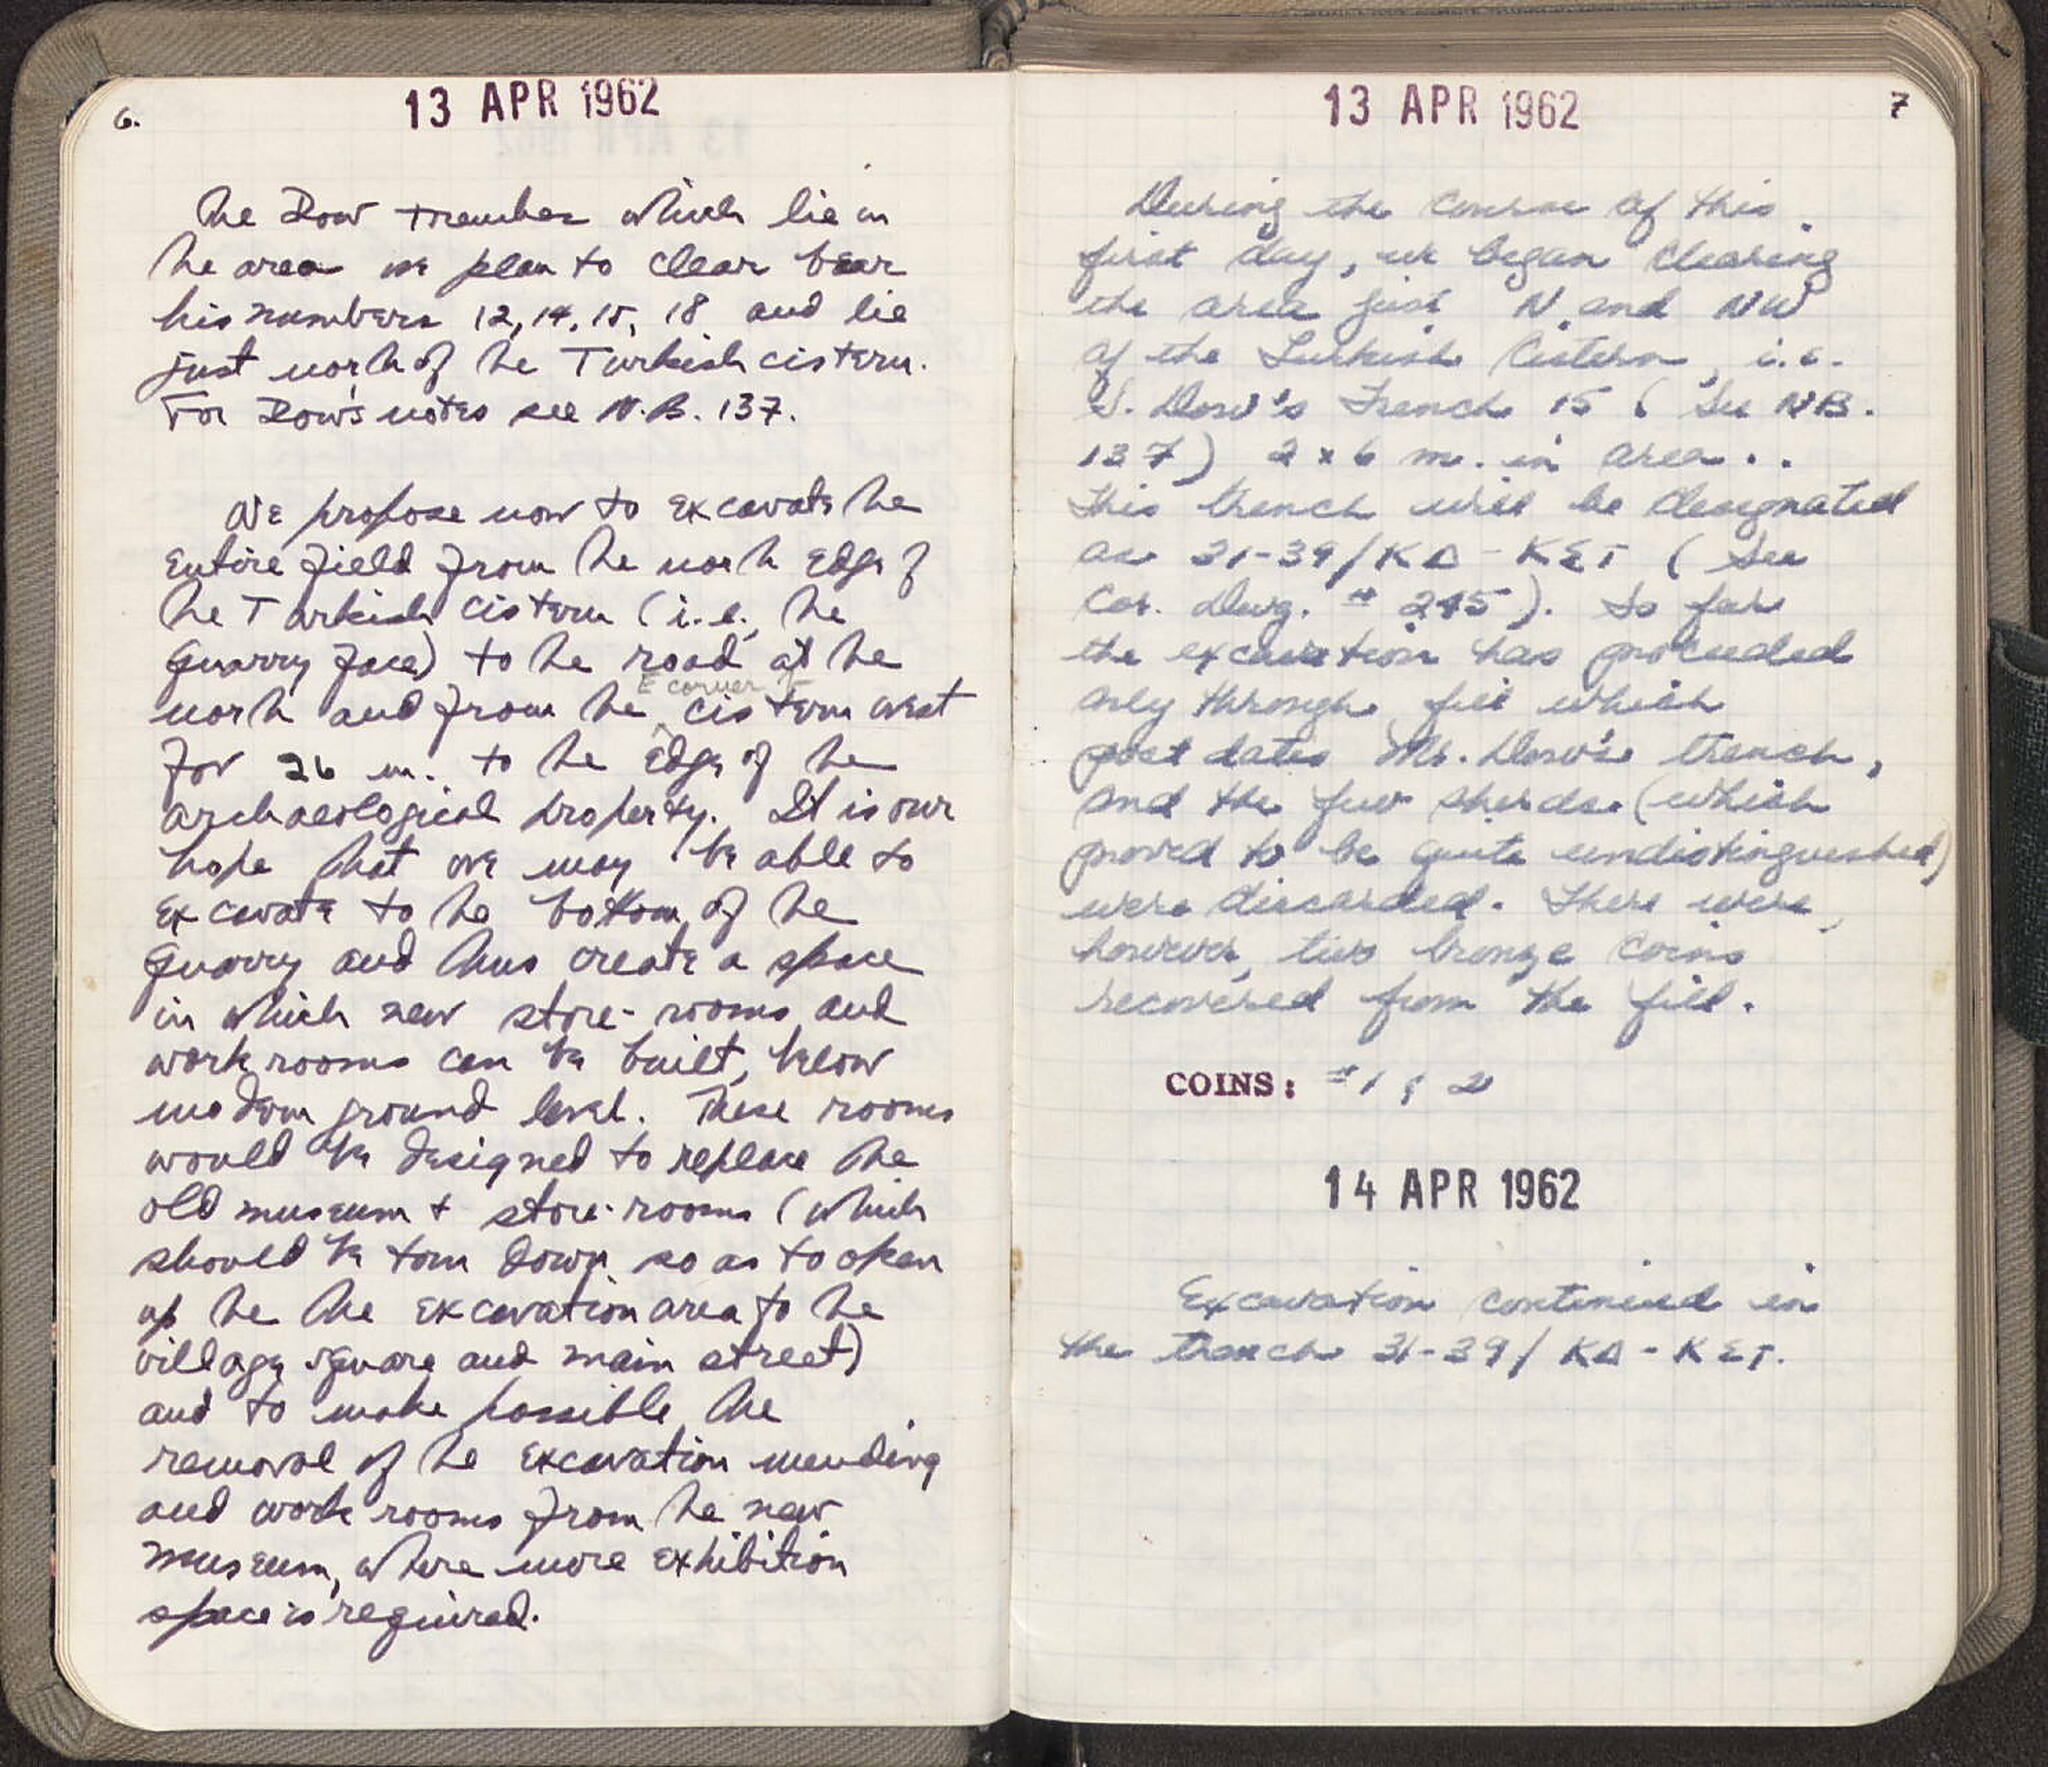 6.
13 APR 1962
The Dow trenches which lie in
the area we plan to clear bear
his numbers 12, 14, 15, 18 and lie
just north of the Turkish cistern.
For Dow's notes see N.B. 137.
We propose now to excavate the
entire field from the north edge of
the Turkish cistern (i.e., the
quarry face) to the road at the
E corner of
north and from the cistern west
for 26 m. to the edge of the
archaeological property. It is our
hope that we may be able to
excavate to the bottom of the
quarry and thus create a space
in which new store-rooms and
work rooms can be built, below
modern ground level. These rooms
would be designed to replace the
old museum + store-rooms (which
should be torn down so as to open
up the the excavation area to the
village square and main street)
and to make possible the
removal of the excavation mending
and work rooms from the new
museum, where more exhibition
space is required.
13 APR 1962
7
During the course of this
first day, we began clearing
the area just N. and NW
of the Turkish Cistern, i.e.
S. Dow's Trench 15 (See NB.
137) 2 x 6 m. in area..
This trench will be designated
as 31-39/KΔ - KET (See
Cor. Dwg. # 245). So far
the excavation has proceeded
only through fill which
post dates Mr. Dow's trench,
and the few sherds (which
proved to be quite undistinguished)
were discarded. There were,
however, two bronze coins
recovered from the fill.
COINS: #1 ; 2
14 APR 1962
Excavation continued in
the trench 31-39/ KΔ - KΣT.